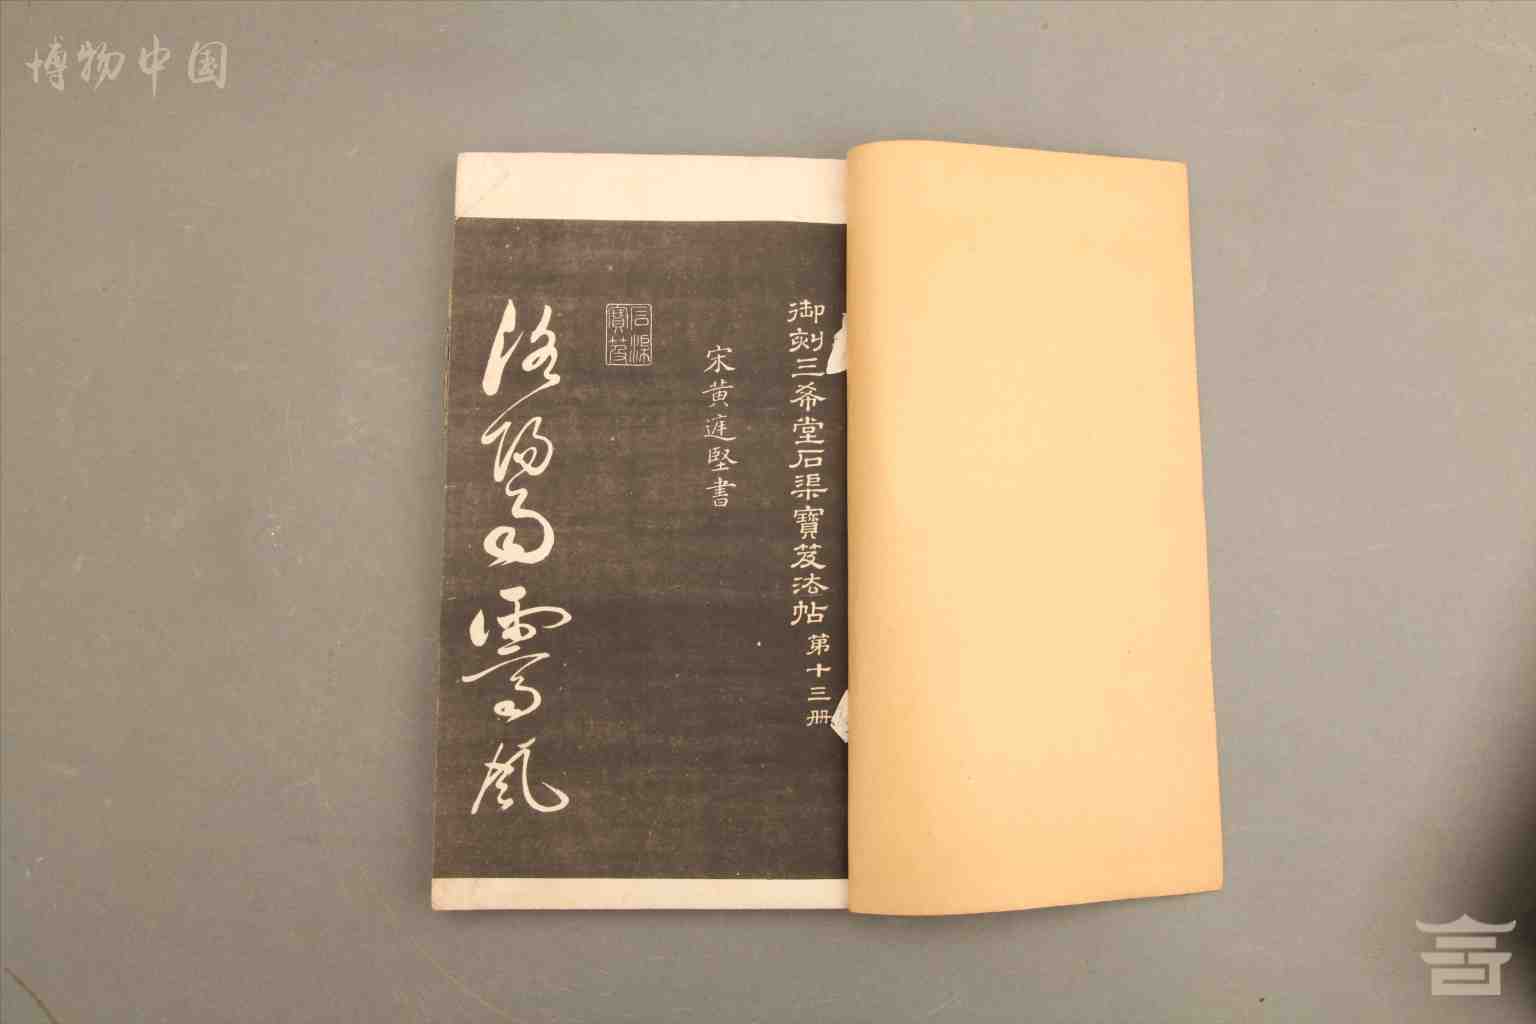 博物中国
御刻三希堂石渠寶笈法帖 第十三册
宋黄庭堅書
石渠寶笈
洛陽雩風